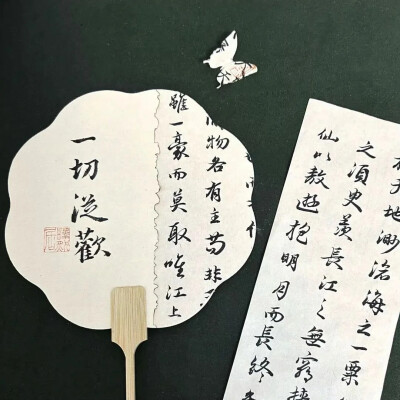 一切從歡
物各有主苟非
雖一豪而莫取唯江上
天地渺滄海之一粟
之須臾羨長江之無窮挾
仙以遨遊抱明月而長終